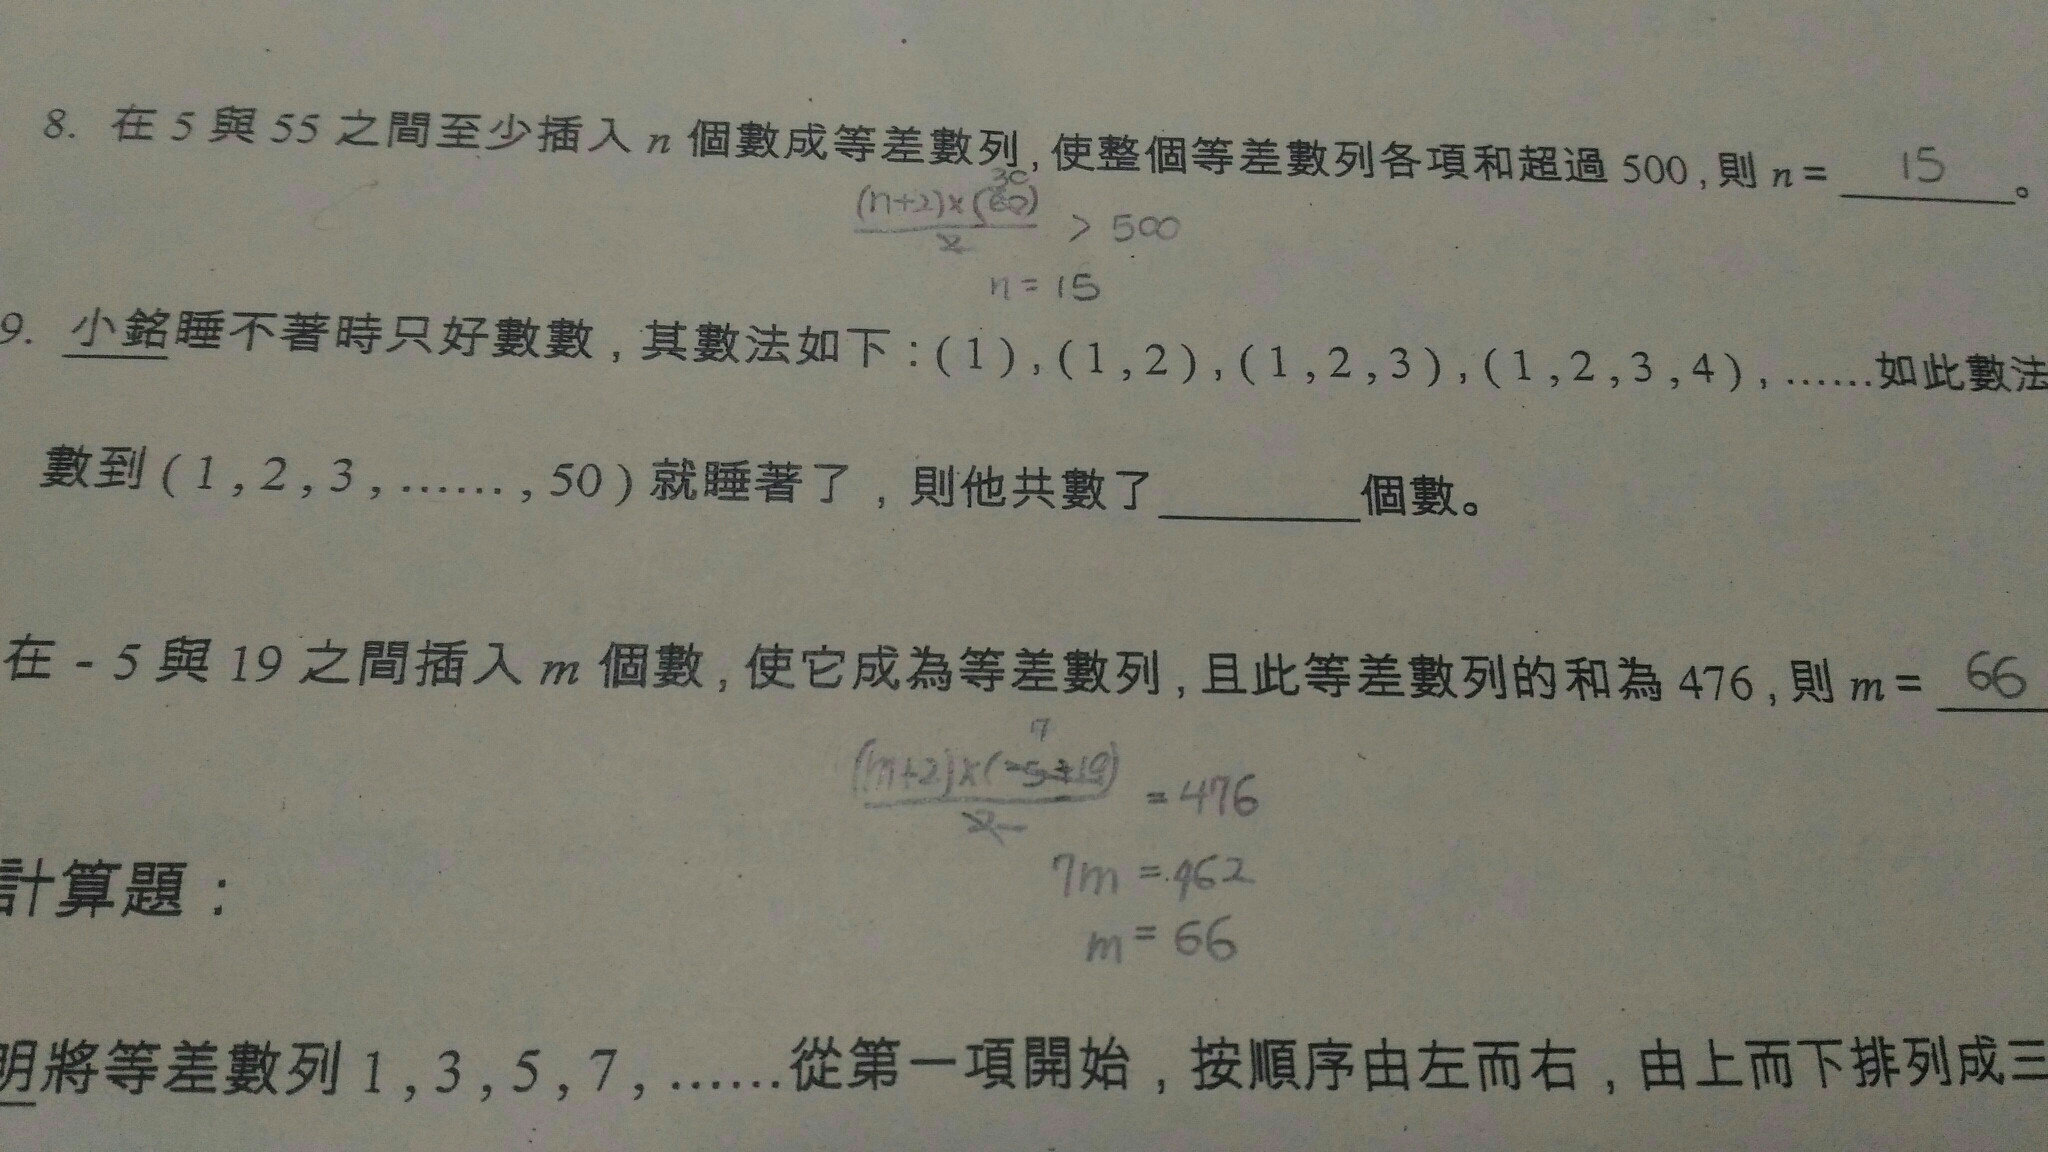 8. 在 5 與 55 之間至少插入 n 個數成等差數列,使整個等差數列各項和超過 500,則 n = 15 。
30
(n+2)×(60)
2
> 500
n = 15
9. 小銘睡不著時只好數數,其數法如下:(1),(1,2),(1,2,3),(1,2,3,4),……如此數法
數到(1,2,3,……,50)就睡著了,則他共數了________個數。
在 - 5 與 19 之間插入 m 個數,使它成為等差數列,且此等差數列的和為 476,則 m = 66
7
(m+2)×(-5+19)
2
= 476
7m = 462
m = 66
計算題:
明將等差數列 1,3,5,7,……從第一項開始,按順序由左而右,由上而下排列成三